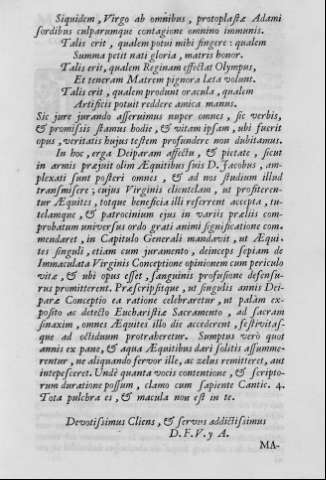 Siquidem, Virgo ab omnibus, protoplastæ Adami
sordibus culparumque contagione omnino immunis.
Talis erit, qualem potui mihi fingere: qualem
Summa petit nati gloria, matris honor.
Talis erit, qualem Reginam effectat Olympus,
Et teneram Matrem pignora læta volunt.
Talis erit, qualem produnt oracula, qualem
Artificis potuit reddere amica manus.
Sic jure jurando asseruimus nuper omnes, sic verbis,
& promissis stamus hodie, & vitam ipsam, ubi fuerit
opus, veritatis hujus testem profundere non dubitamus.
In hoc, erga Deiparam affectu, & pietate, sicut
in armis præjuit olim Æquitibus suis D. Jacobus, am-
plexati sunt posteri omnes, & ad nos studium illud
transmisere; cujus Virginis clientelam, ut profiteren-
tur Æquites, totque beneficia illi referrent accepta, tu-
telamque, & patrocinium ejus in variis præliis com-
probatum universus ordo grati animi significatione com-
mendaret, in Capitulo Generali mandavit, ut Æqui-
tes singuli, etiam cum juramento, deinceps sepiam de
Immaculata Virginis Conceptione opinionem cum periculo
vitæ, & ubi opus esset, sanguinis profusione defensu-
rus promitterent. Præscripsitque, ut singulis annis Dei-
paræ Conceptio ea ratione celebraretur, ut palàm ex-
posito ac detecto Eucharistiæ Sacramento, ad sacram
sinaxim, omnes Æquites illo die accederent, festivitas-
que ad octiduum protraheretur. Sumptus verò quot
annis ex pane, & aqua Æquitibus dari solitis assumme-
rentur, ne aliquando fervor ille, ac zelus remitteret, aut
intepesceret. Undè quanta vocis contentione, & scripto-
rum duratione possum, clamo cum sapiente Cantic. 4.
Tota pulchra es, & macula non est in te.
Devotissimus Cliens, & servus addictissimus
D. F. V. y A.
MA-